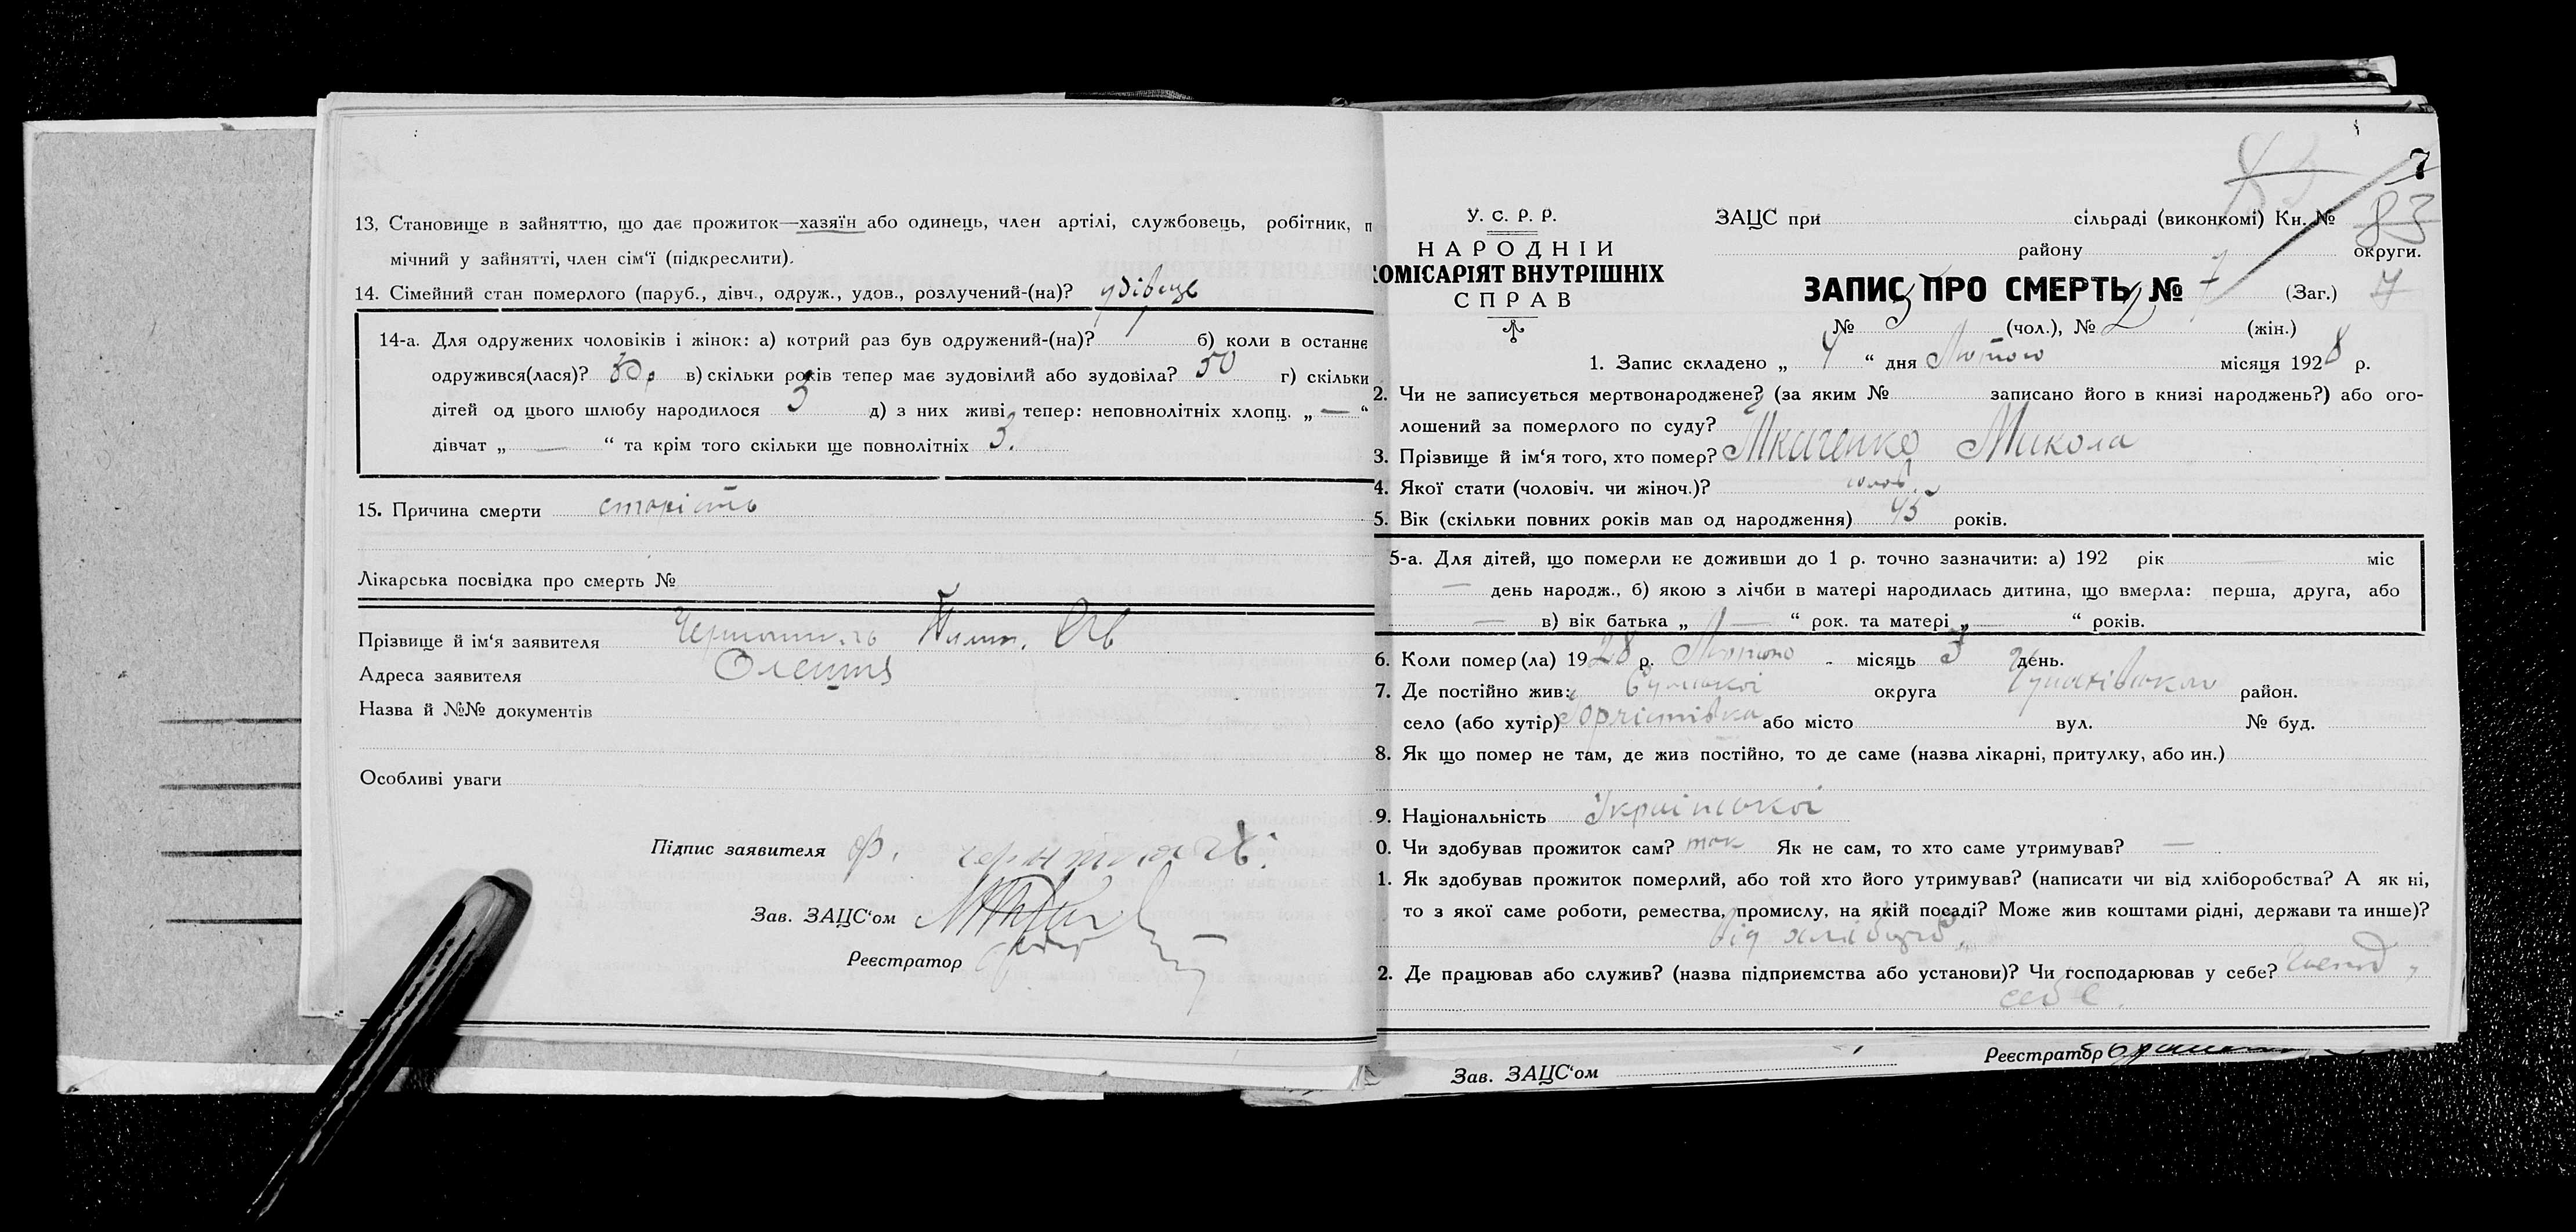 13. Становище в зайняттю, що дає прожиток—хазяїн або одинець, член артілі, службовець, робітник, п
мічний у зайнятті, член сім'ї (підкреслити).
14. Сімейний стан померлого (паруб., дівч., одруж., удов., розлучений-(на)? удівець
14-а. Для одружених чоловіків і жінок: а) котрий раз був одружений-(на)? б) коли в останнє
одружився(лася)? в) скільки років тепер має зудовілий або зудовіла? 50 г) скільки
дітей од цього шлюбу народилося 3 д) з них живі тепер: неповнолітніх хлопц. „ — “
дівчат „ — “ та крім того скільки ще повнолітніх 3.
15. Причина смерти старість
Лікарська посвідка про смерть №
Прізвище й ім'я заявителя
Адреса заявителя
Назва й №№ документів
Особливі уваги
Підпис заявителя
Зав. ЗАЦС'ом
Реєстратор
7
83
У. С. Р. Р.
НАРОДНІЙ
КОМІСАРІЯТ ВНУТРІШНІХ
СПРАВ
ЗАЦС при сільраді (виконкомі) Кн. № 83
району округи.
ЗАПИС ПРО СМЕРТЬ № 7 (Заг.) 7
№ 5 (чол.), № 2 (жін.)
1. Запис складено „ 4 “ дня Лютого місяця 1928 р.
2. Чи не записується мертвонароджене? (за яким № записано його в книзі народжень?) або ого-
лошений за померлого по суду?
3. Прізвище й ім'я того, хто помер? Ткаченко Микола
4. Якої стати (чоловіч. чи жіноч.)? чолов.
5. Вік (скільки повних років мав од народження) років.
5-а. Для дітей, що померли не доживши до 1 р. точно зазначити: а) 192 рік — міс
— день народж., б) якою з лічби в матері народилась дитина, що вмерла: перша, друга, або
— в) вік батька „ — “ рок. та матері „ — “ років.
6. Коли помер(ла) 1928 р. Лютого місяць 3 день.
7. Де постійно жив: Сумської округа район.
село (або хутір) або місто вул. № буд.
8. Як що помер не там, де жив постійно, то де саме (назва лікарні, притулку, або ин.)
9. Національність Української
0. Чи здобував прожиток сам? так Як не сам, то хто саме утримував? —
1. Як здобував прожиток померлий, або той хто його утримував? (написати чи від хліборобства? А як ні,
то з якої саме роботи, ремества, промислу, на якій посаді? Може жив коштами рідні, держави та инше)?
від
2. Де працював або служив? (назва підприємства або установи)? Чи господарював у себе?
себе.
Зав. ЗАЦС'ом Реєстратор